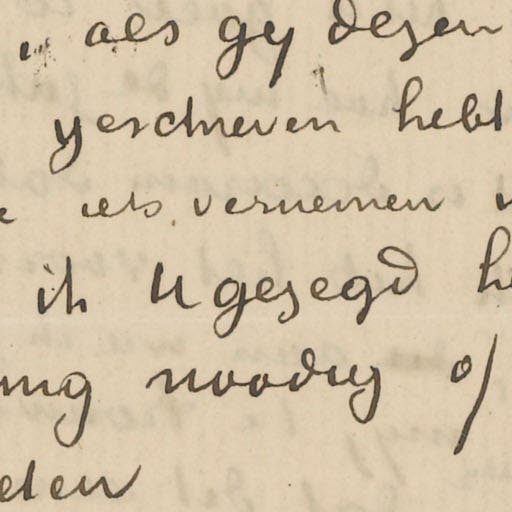 als gy dezen
geschreven hebt
iets vernemen
ik U gezegd he
ing noodig of
eten